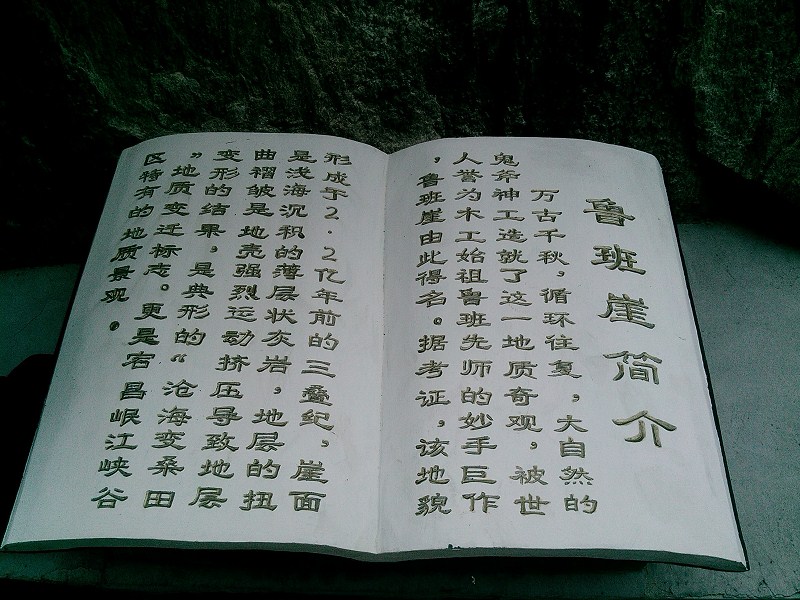 鲁班崖简介
万古千秋，循环往复，大自然的
鬼斧神工造就了这一地质奇观，被世
人誉为木工始祖鲁班先师的妙手巨作
，鲁班崖由此得名。据考证，该地貌
形成于2.2亿年前的三叠纪，崖面
是浅海沉积的薄层状灰岩，地层的扭
曲褶皱是地壳强烈运动挤压导致地层
变形的结果，是典形的“沧海变桑田
”地质变迁标志。更是宕昌岷江峡谷
区特有的地质景观。